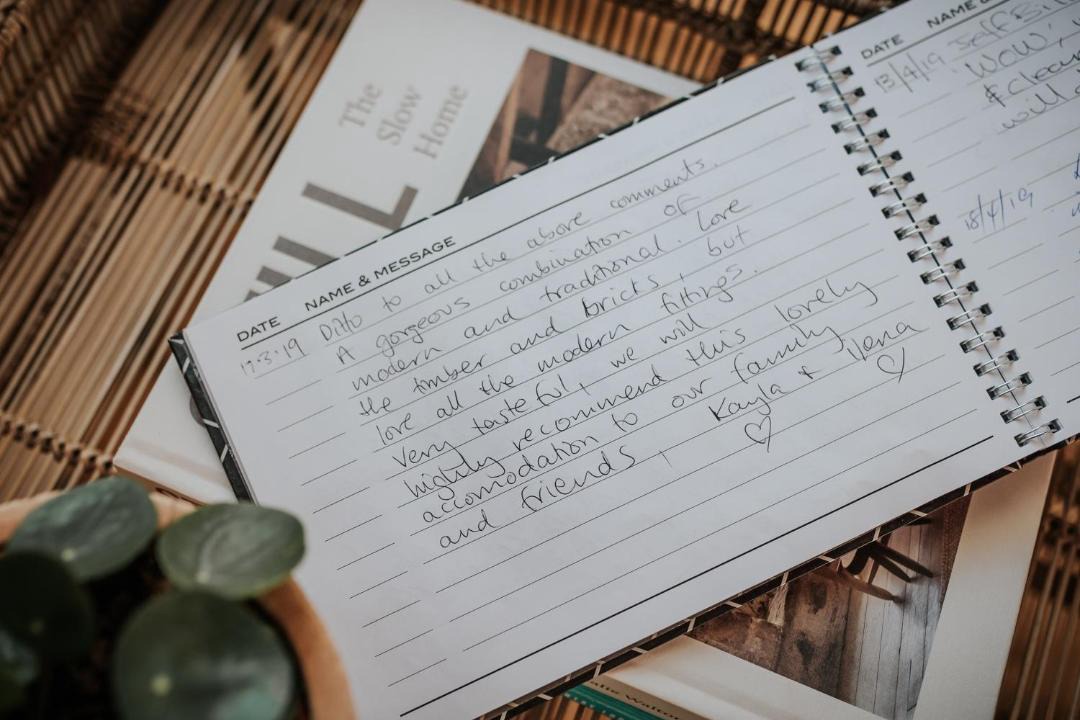 The
Slow
Home
DATE NAME & MESSAGE
17.3.19 Ditto to all the above comments.
A gorgeous combination of
modern and traditional. Love
the timber and bricks, but
love all the modern fittings.
Very tasteful, we will
highly recommend this lovely
accomodation to our family
and friends.
Kayla + Ilena
♡ ♡
DATE NAME &
13/4/19 Jeff
WOW!
& clean
will
18/4/19